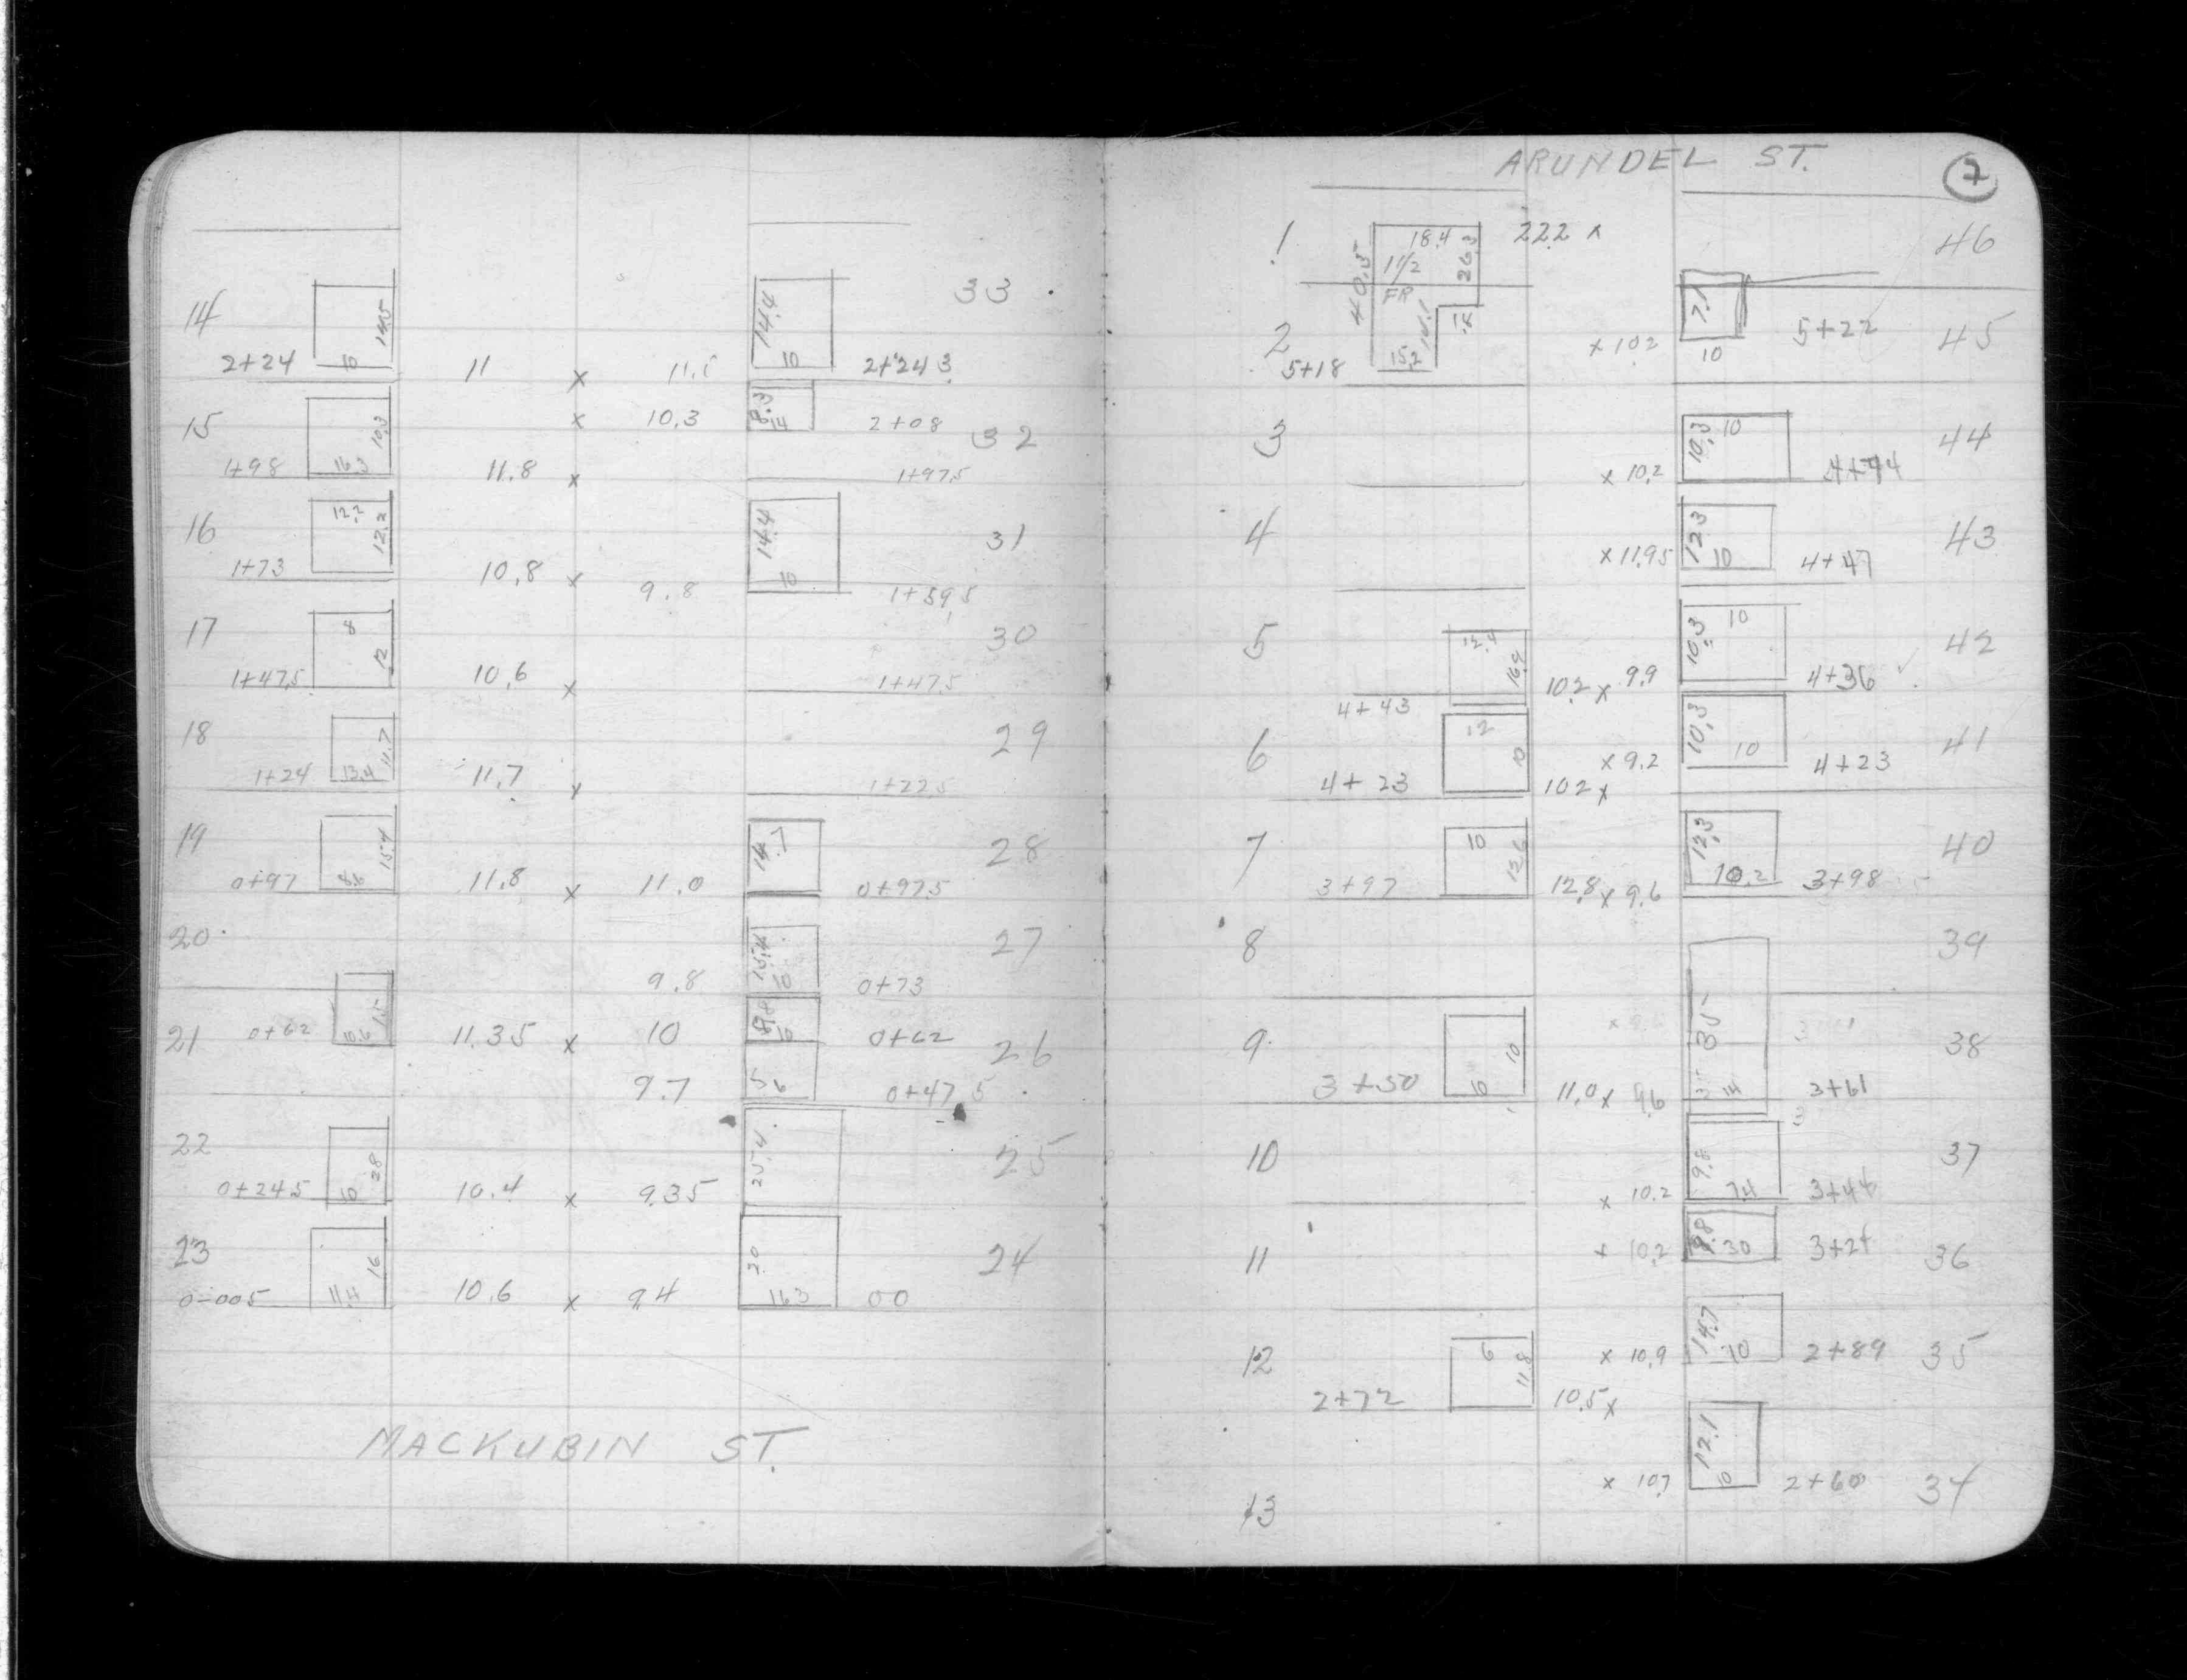 33
14 14.5 14.4
2+24 10 11 x 10 2+24 3
x 10.3 8.3 14 2+08 32
15 10.3
1+98 16.3 11.8 x 1+97.5
16 12.2 12.2 14.4 31
1+73 10.8 x 9.8 10 1+59.5
17 8 12 30
1+47.5 10.6 x 1+47.5
18 11.7 29
1+24 13.4 11.7 x 1+22.5
19 15.4 14.7 28
0+97 8.6 11.8 x 11.0 0+97.5
20 27
9.8 10 0+73
21 0+62 10.6 15 11.35 x 10 10 0+62 26
9.7 5 6 0+47.5
22 28 25.4 25
0+24.5 10 10.4 x 9.35
23 16 20 24
0-005 11.4 10.6 x 9.4 16.3 00
MACKUBIN ST.
ARUNDEL ST. 7
1 18.4 22.2 x 46
40.5 1 1/2 26.3
FR
2 14.1 7.1 5+22 45
5+18 15.2 x 10.2 10
3 10.3 10 44
x 10.2 4+44
4 12.3 43
x 11.95 10 4+47
5 12.4 16.9 10.3 10 42
4+43 10.2 x 9.9 4+36
6 12 10 x 9.2 10.3 10 4+23 41
4+23 10.2 x
7 10 12.6 12.3 40
3+97 12.8 x 9.6 10.2 3+98
8 39
9 10 35 38
3+50 10 11.0 x 9.6 14 3+61
10 9.8 37
x 10.2 7.4 3+44
11 10.2 9.8 30 36
12 6 11.8 x 10.9 14.7 10 2+89 35
2+72 10.5 x
12.1
x 10.7 10 2+60 34
13